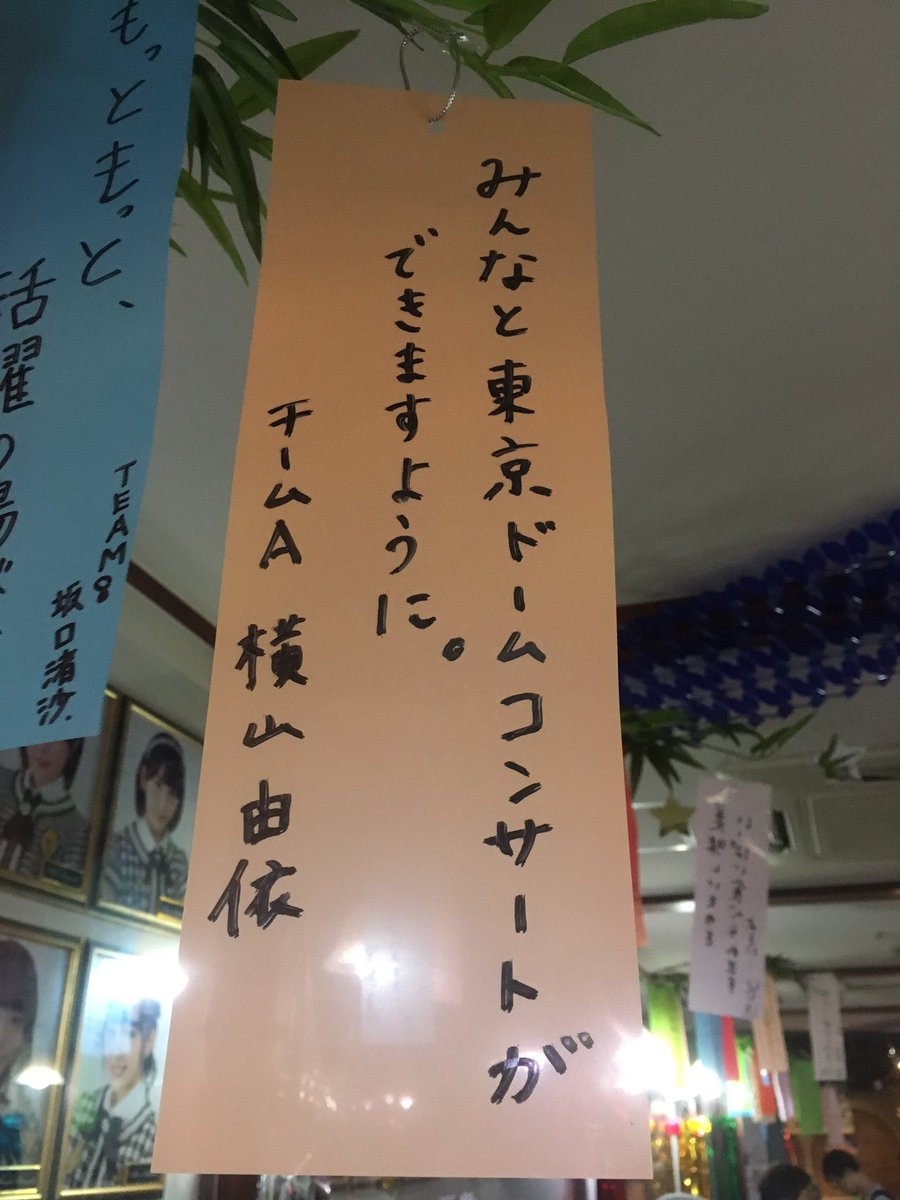 みんなと東京ドームコンサートが
できますように。
チームA 横山由依
もっともっと、
活躍の場が
TEAM8
坂口渚沙